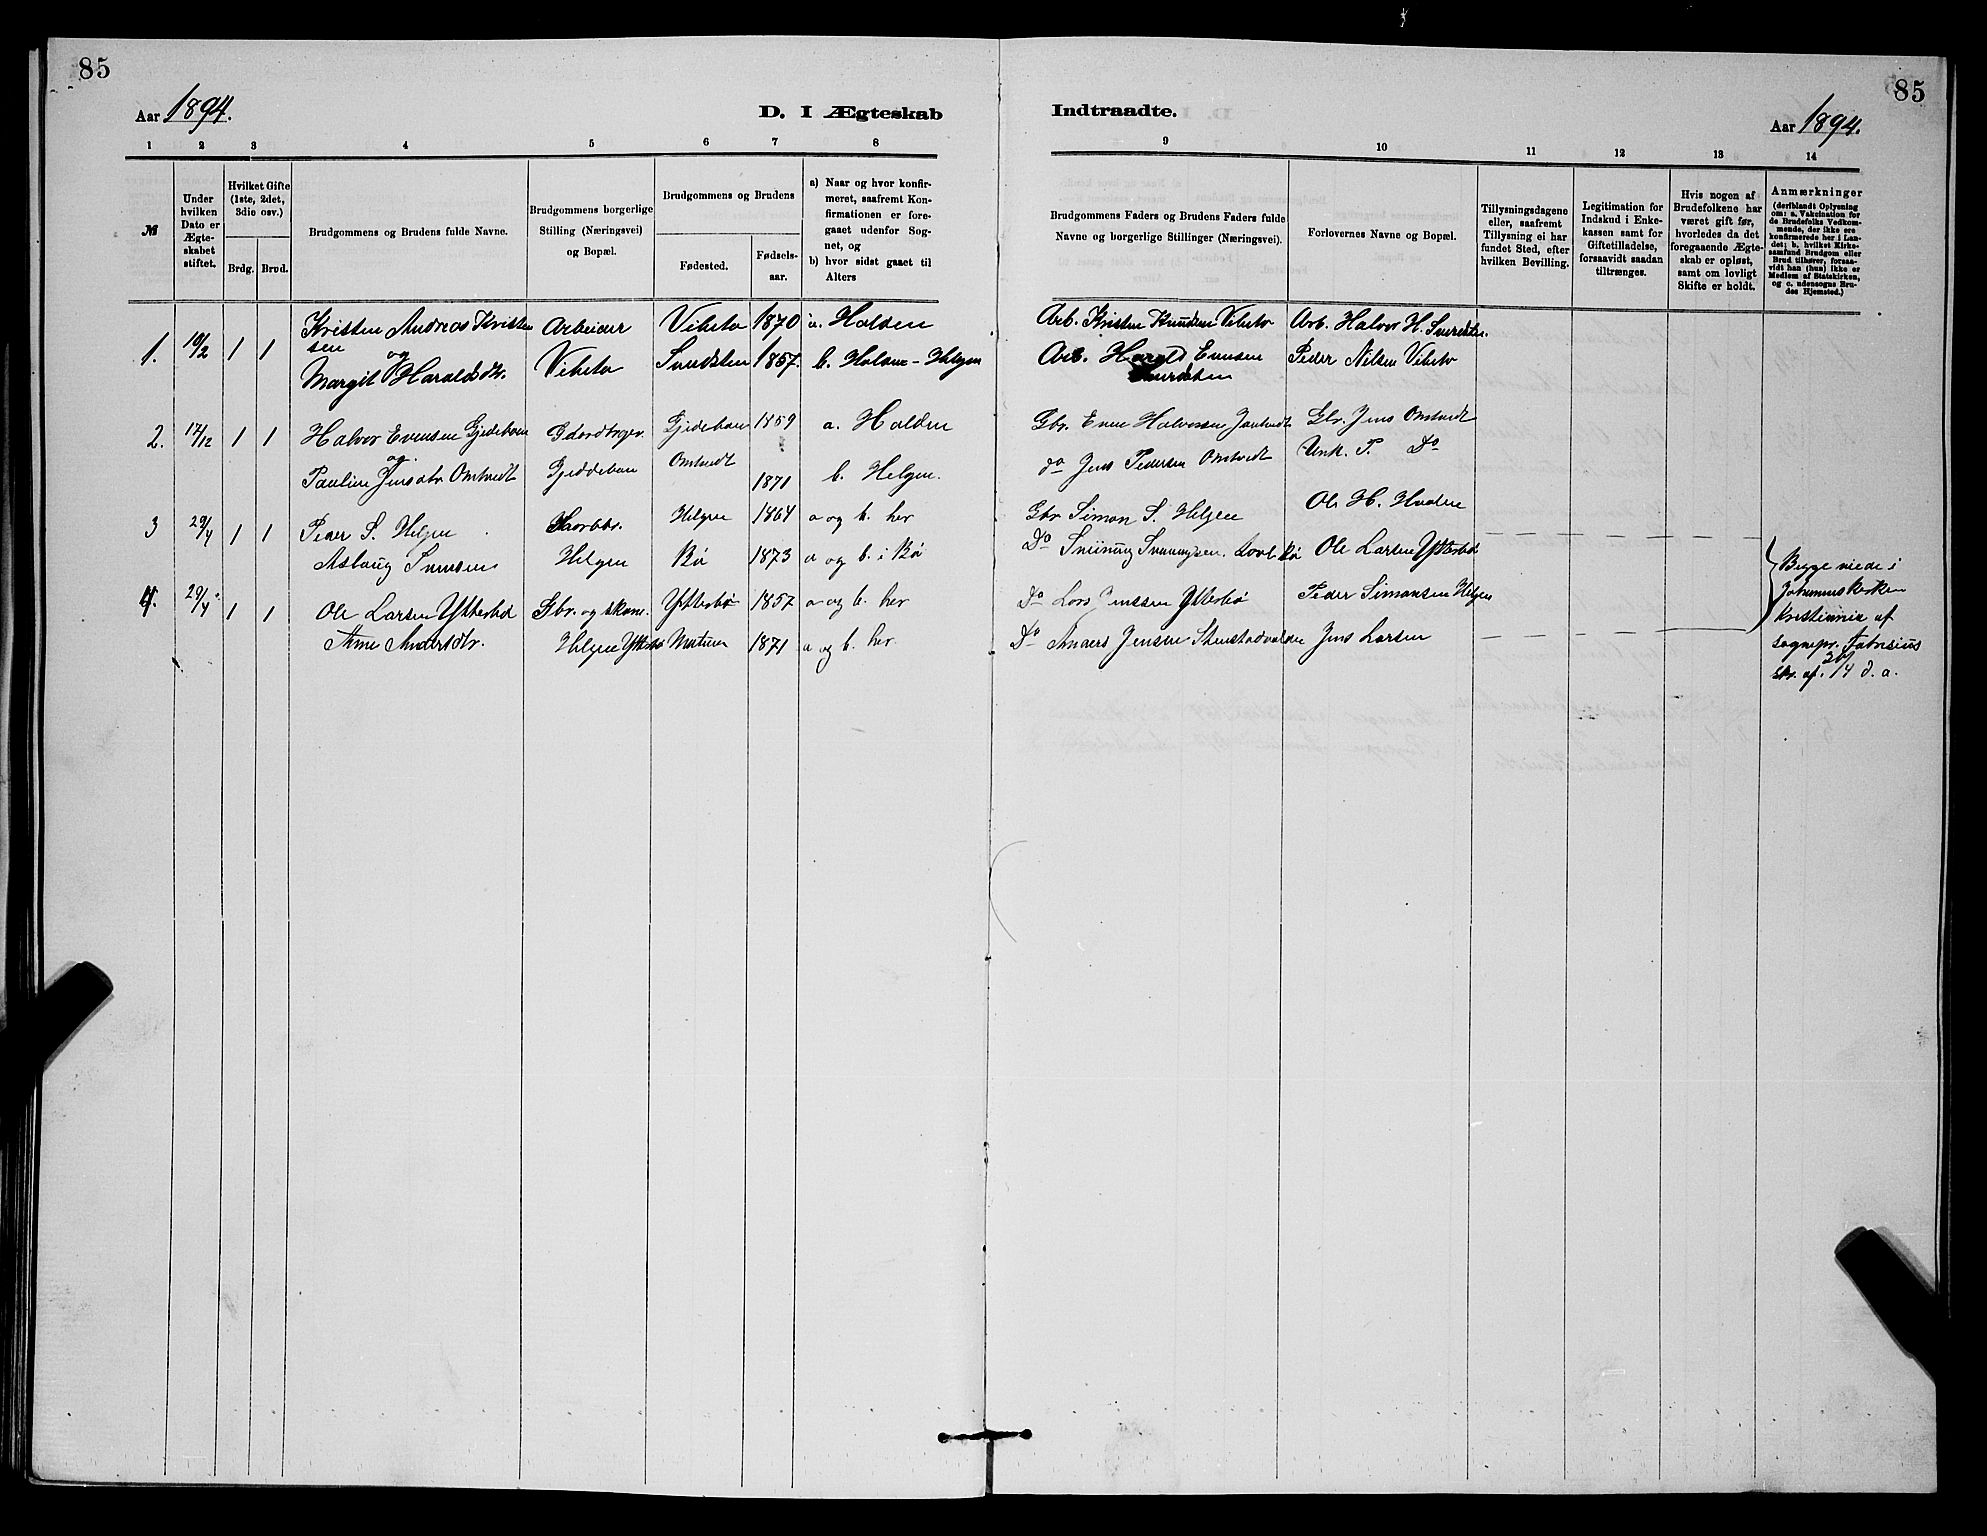 85
Aar 1894.
D. I Ægteskab
1 2 3 4 5 6 7 8
№
Under hvilken Dato er Ægteskabet stiftet.
Hvilket Gifte (1ste, 2det, 3die osv.)
Brdg. Brud.
Brudgommens og Brudens fulde Navne.
Brudgommens borgerlige Stilling (Næringsvei) og Bopæl.
Brudgommens og Brudens
Fødested.
Fødselsaar.
a) Naar og hvor konfirmeret, saafremt Konfirmationen er foregaaet udenfor Sognet, og
b) hvor sidst gaaet til Alters
1. 10/2 1 1 Kristen Andreas Kristensen Arbeider Vibeto 1870 a. Holden
og
Margit Haraldsdtr. Vibeto 1857. b. Holden - Helgen
2. 17/12 1 1 Halvor Evensen Gjedeboen 1859 a. Holden
og
Pauline Jensdtr Omtvedt Gjeddeboen Omtvedt 1871 b. Helgen.
3 29/4 1 1 Peder S. Helgen Helgen 1864 a og b. her
Aslaug Helgen Bø 1873 a og b. i Bø
4. 29/4 1 1 Ole Larsen Ytterbø Gbr. og Ytterbø 1857 a og b. her
Anne Andersdtr. Helgen Ytterbø 1871 a og b. her
85
Indtraadte.
Aar 1894.
9 10 11 12 13 14
Brudgommens Faders og Brudens Faders fulde Navne og borgerlige Stillinger (Næringsvei).
Forlovernes Navne og Bopæl.
Tillysningsdagene eller, saafremt Tillysning ei har fundet Sted, efter hvilken Bevilling.
Legitimation for Indskud i Enkekassen samt for Giftetilladelse, forsaavidt saadan tiltrænges.
Hvis nogen af Brudefolkene har været gift før, hvorledes da det foregaaende Ægteskab er opløst, samt om lovligt Skifte er holdt.
Anmærkninger (deriblandt Oplysning om: a. Vakcination for de Brudefolks Vedkommende, der ikke ere konfirmerede her i Landet; b. hvilket Kirkesamfund Brudgom eller Brud tilhører, forsaavidt han (hun) ikke er Medlem af Statskirken, og c. udensogns Brudes Hjemsted.)
Arb. Kristen Knudsen Vibeto Arb. Halvor H.
Arb. Harald Evensen Peder Nilsen Vibeto
Gbr. Even Halvorsen Gbr. Jens Omtvedt
do Jens Pedersen Omtvedt Unk. P. Do
Gbr Simon S. Helgen Ole H.
Do Bø Ole Larsen Ytterbø
Do Lars Jenssen Ytterbø Peder Simonsen Helgen
Do Anders Jensen Jens Larsen
Begge viede i
Johanneskirken
Kristiania af
sognepr. Fabricius
Skr. af 30/4 d. a.